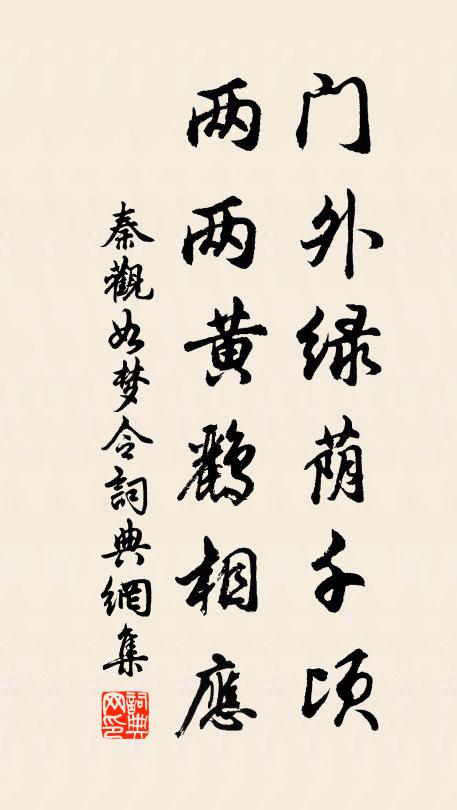 门外绿荫千顷
两两黄鹂相應
秦觀如梦令詞典網集
詞典网印